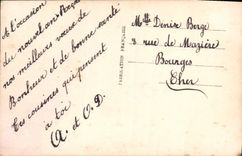 A l'occasion
du nouvel an Reçois
nos meilleurs vœux de
Bonheur et de bonne santé
Tes cousines qui pensent
à toi
A. et O. D.
FABRICATION FRANÇAISE
Mlle Denise Berge
8 rue de Mazière
Bourges
Cher